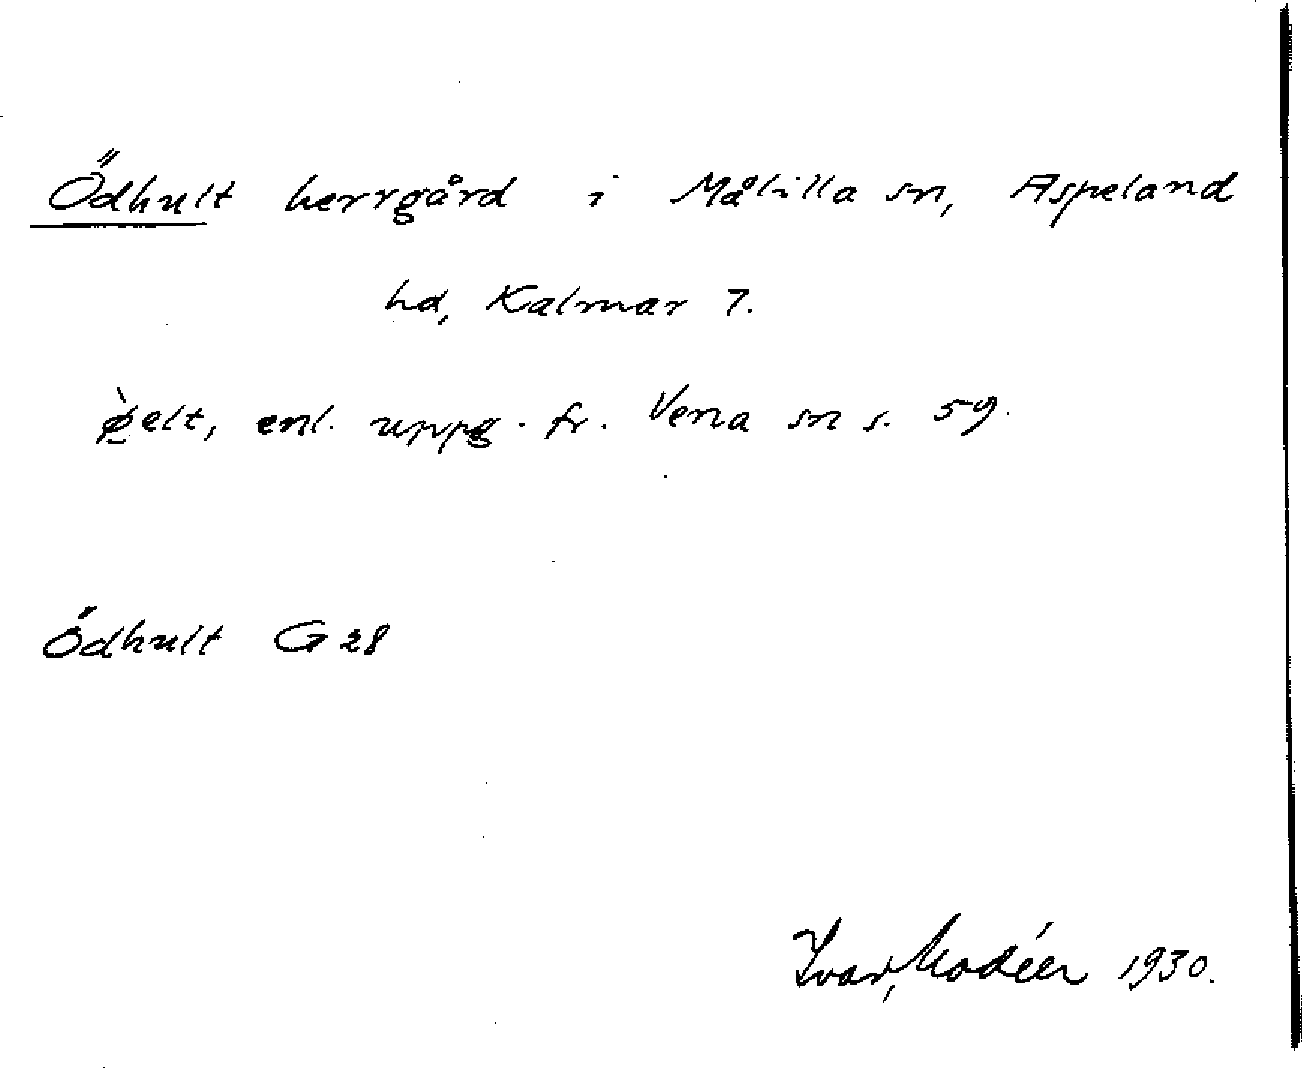 Ödhult herrgård i Målilla sn, Aspeland
hd, Kalmar 7.
ø̀elt, enl. uppg. fr. Vena sn s. 59.
Ödhult G 28
Ivar Modéer 1930.